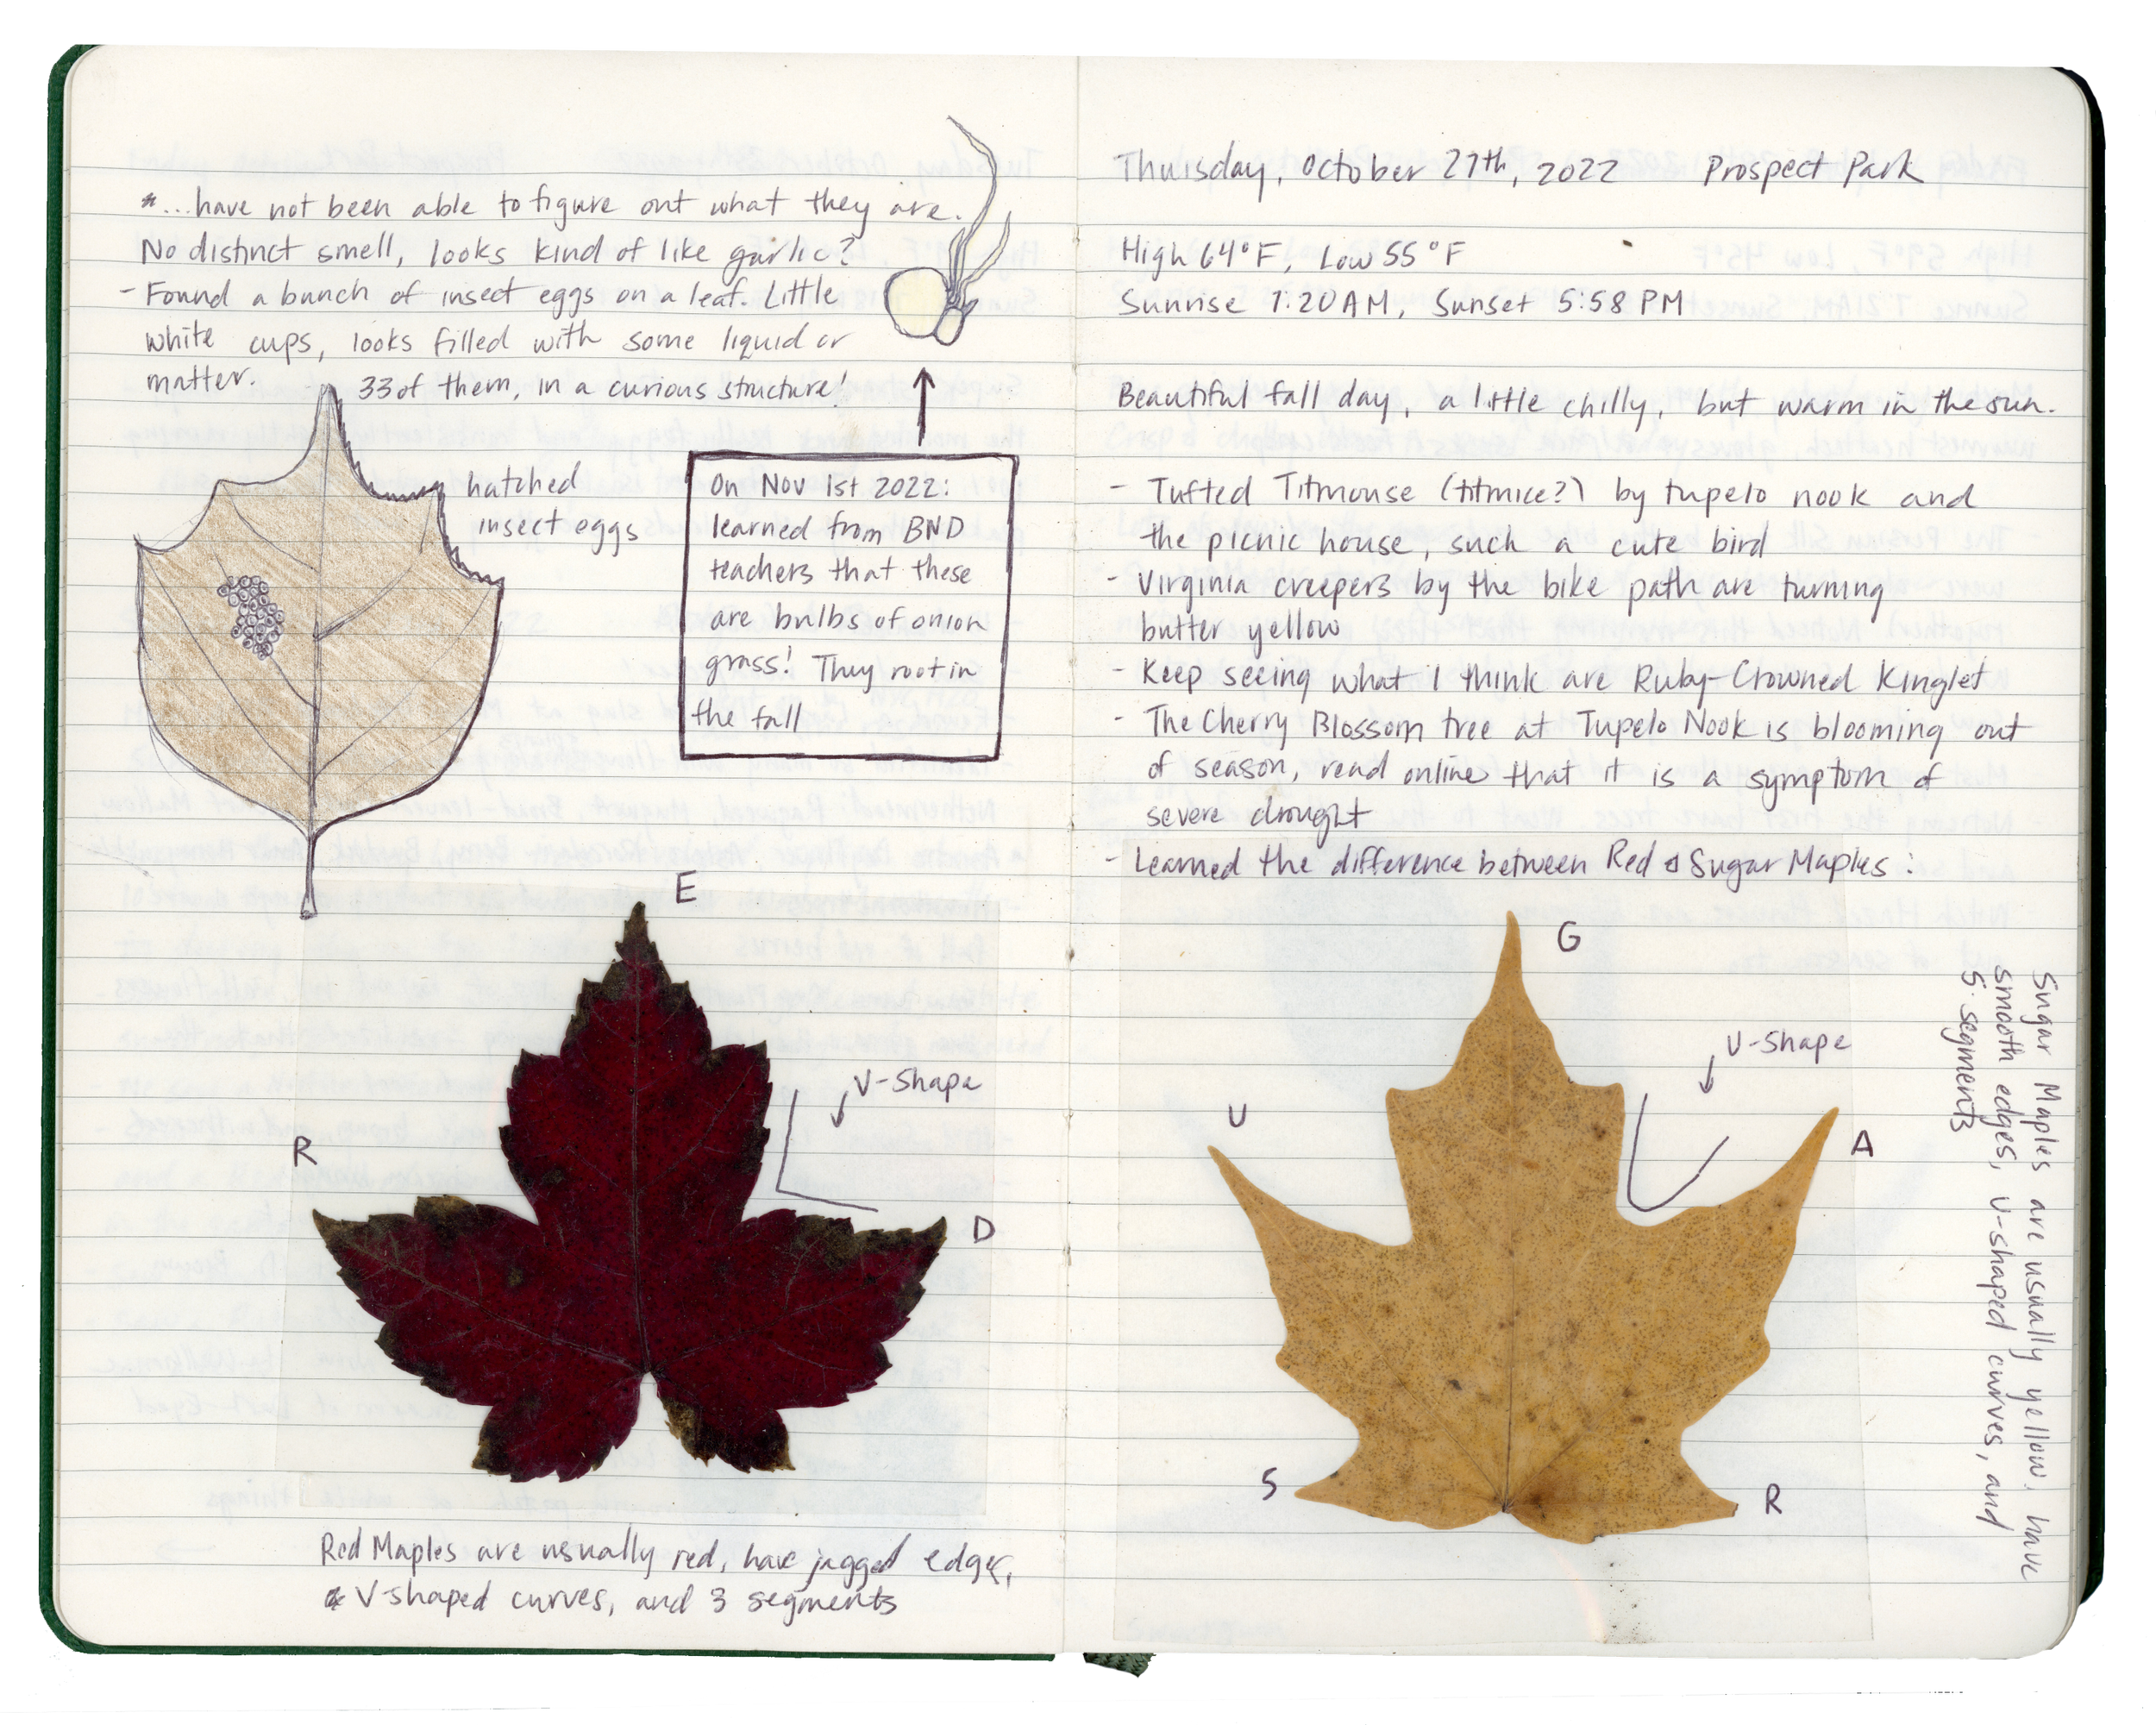 *...have not been able to figure out what they are.
No distinct smell, looks kind of like garlic?
- Found a bunch of insect eggs on a leaf. Little
white cups, looks filled with some liquid or
matter.
33 of them, in a curious structure!
hatched
insect eggs
On Nov 1st 2022:
learned from BND
teachers that these
are bulbs of onion
grass! They root in
the fall
E
R
V-Shape
D
Red Maples are usually red, have jagged edges,
V-shaped curves, and 3 segments
Thursday, October 27th, 2022 Prospect Park
High 64°F, Low 55°F
Sunrise 7:20AM, Sunset 5:58 PM
Beautiful fall day, a little chilly, but warm in the sun.
- Tufted Titmouse (titmice?) by tupelo nook and
the picnic house, such a cute bird
- Virginia creepers by the bike path are turning
butter yellow
- Keep seeing what I think are Ruby-Crowned Kinglet
- The Cherry Blossom tree at Tupelo Nook is blooming out
of season, read online that it is a symptom of
severe drought
- Learned the difference between Red & Sugar Maples:
G
U-Shape
U
A
S
R
Sugar Maples are usually yellow, have
smooth edges, U-shaped curves, and
5 segments